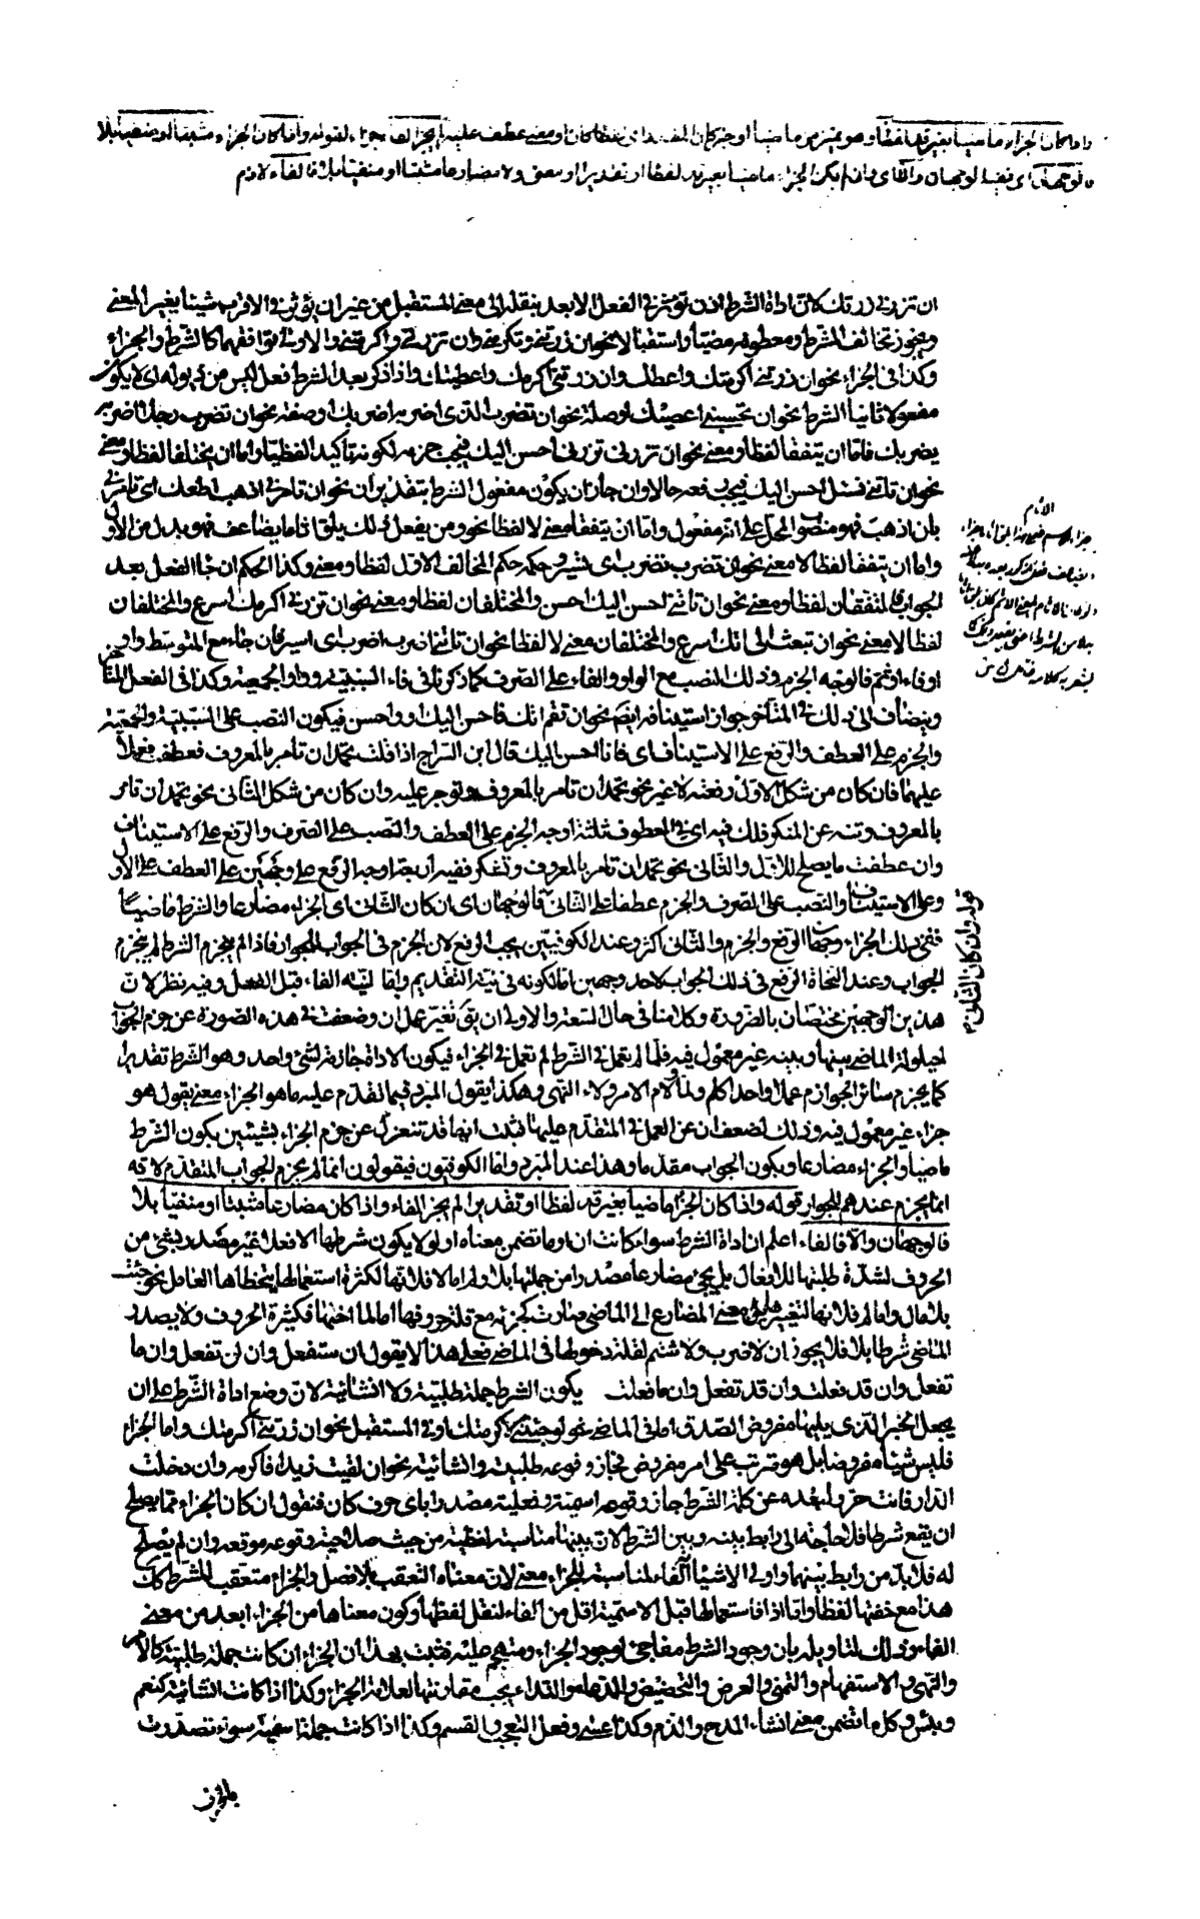 واذا كان الجزاء ماضيا بغير قد لفظا
فالوجهان اى ففيه الوجهان والا اى وان لم يكن الجزاء ماضيا بغير قد لفظا او تقديرا او معنى ولا مضارعا مثبتا او منفيا بلا فالفاء لازم
ان تزرنى زرتك كانت اداة الشرط اذن تؤثر فى الفعل الابعد بنقله الى معنى المستقبل من غير ان يؤثر فى الاقرب شيئا يغير المعنى
ويجوز تخالف الشرط ومعطوفه مضيا واستقبالا نحو ان زرتنى وتكرمنى وان تزرنى واكرمتنى والاولى توافقهما كالشرط والجزاء
وكذا فى الجزاء نحو ان زرتنى اكرمتك واعطك وان زرتنى اكرمك واعطيتك واذا ذكر بعد الشرط فعل ليس من ذيوله اى لا يكون
مفعولا ثانيا للشرط نحو ان تحسبنى اعصيك او صلة نحو ان تضرب الذى اضربه اضربك او صفة نحو ان تضرب رجلا اضربه
يضربك فاما ان يتفقا لفظا ومعنى نحو ان تزرنى تزرنى احسن اليك فيجب جزمه لكونه تأكيدا لفظيا واما ان يختلفا لفظا ومعنى
نحو ان تاتنى تسئل احسن اليك فيجب رفعه حالا وان جاز ان يكون مفعول الشرط بتقدير ان نحو ان تامرنى اذهب اطعك اى تامرنى
بان اذهب فهو منصوب المحل على انه مفعول واما ان يتفقا معنى لا لفظا نحو ومن يفعل ذلك يلق اثاما يضاعف فهو بدل من الاول
واما ان يتفقا لفظا لا معنى نحو ان تضرب تضرب اى تسير وحكمه حكم المخالف الاول لفظا ومعنى وكذا الحكم ان جا الفعل بعد
الجواب فالمتفقان لفظا ومعنى نحو ان تاتنى احسن اليك احسن والمختلفان لفظا ومعنى نحو ان تزرنى اكرمك اسرع والمختلفان
لفظا لا معنى نحو ان تبعث الى اتك اسرع والمختلفان معنى لا لفظا نحو ان تاتنى اضرب اضرب اى اسير فان جاء مع المتوسط واو
او فاء او ثم فالوجه الجزم وذلك النصب مع الواو والفاء على الصرف كما ذكرنا فى فاء السببية وواو الجمعية وكذا فى الفعل المتأخر
ويضاف الى ذلك فى المتأخر جواز استينافه ايضا نحو ان تقم اتك فاحسن اليك او واحسن فيكون النصب على السببية والجمعية
والجزم على العطف والرفع على الاستيناف اى فانا احسن اليك قال ابن السراج اذا قلت تحمد ان تامر بالمعروف فعطفت فعلا
عليهما فان كان من شكل الاول رفعته لا غير نحو تحمد ان تامر بالمعروف وتوجر عليه وان كان من شكل الثانى نحو تحمد ان تامر
بالمعروف وتنه عن المنكر فلك فيه اى فى المعطوف ثلثة اوجه الجزم على العطف والنصب على الصرف والرفع على الاستيناف
وان عطفت ما يصلح للاول والثانى نحو تحمد ان تامر بالمعروف وتشكر ففيه اربعة اوجه الرفع على وجهين على العطف على الاول
وعلى الاستيناف والنصب على الصرف والجزم عطفا على الثانى فالوجهان اى ان كان الثانى اى الجزاء مضارعا والشرط ماضيا
ففى ذلك الجزاء وجهان الرفع والجزم والثانى اكثر وعند الكوفيين يجب الرفع لان الجزم فى الجواب للجوار فاذا لم ينجزم الشرط لم ينجزم
الجواب وعند النحاة الرفع فى ذلك الجواب لاحد وجهين اما لكونه فى نية التقديم واما لنية الفاء قبل الفعل وفيه نظر لان
هذين الوجهين مختصان بالضرورة وكلامنا فى حال السعة والاولى ان يقال تغير عمل ان وضعفت فى هذه الصورة عن جزم الجواب
لحيلولة الماضى بينها وبينه غير معمول فيه فلما لم تعمل فى الشرط لم تعمل فى الجزاء فيكون الاداة جازمة لشئ واحد وهو الشرط تقديرا
كما يجزم سائر الجوازم عملا واحدا كلم ولما ولام الامر ولاء النهى وهكذا يقول المبرد فيما تقدم عليه ما هو الجزاء معنى يقول هو
جزاء غير معمول فيه وذلك لضعف ان عن العمل فى المتقدم عليها فثبت انها قد تنعزل عن جزم الجزاء بشيئين بكون الشرط
ماضيا والجزاء مضارعا وبكون الجواب مقدما وهذا عند المبرد واما الكوفيون فيقولون انما لم يجزم الجواب المتقدم لانه
انما يجزم عندهم للجوار قوله واذا كان الجزاء ماضيا بغير قد لفظا او تقديرا لم يجز الفاء واذا كان مضارعا مثبتا او منفيا بلا
فالوجهان والا فالفاء اعلم ان اداة الشرط سواء كانت ان او ما تضمن معناه او لو لا يكون شرطها الا فعلا غير مصدر بشئ من
الحروف لشدة طلبها للافعال بلى يجئ مضارعا مصدرا من جملتها بلا ولم اما لا فلانها لكثرة استعمالها يتخطاها العامل نحو جئت
بلا مال واما لم فلانها لتغييرها معنى المضارع الى الماضى صارت كجزئه مع قلة حروفها اما لما اختها فكثيرة الحروف ولا يصدر
الماضى شرطا بلا فلا يجوز ان لا ضرب ولا شتم لقلة دخولها فى الماضى فعلى هذا لا يقول ان ستفعل وان لن تفعل وان ما
تفعل وان قد فعلت وان قد تفعل وان ما فعلت يكون الشرط جملة طلبية ولا انشائية لان وضع اداة الشرط على ان
يجعل الخبر الذى يليها مفروض الصدق اما فى الماضى نحو لو جئتنى لاكرمتك او فى المستقبل نحو ان زرتنى اكرمتك واما الجزاء
فليس شيئا مفروضا بل هو مترتب على امر مفروض فجاز وقوعه طلبية وانشائية نحو ان لقيت زيدا فاكرمه وان دخلت
الدار فانت حر ولبعده عن كلمة الشرط جاز وقوعه اسمية وفعلية مصدرا باى حرف كان فنقول ان كان الجزاء مما يصلح
ان يقع شرطا فلا حاجة الى رابط بينه وبين الشرط لان بينهما مناسبة لفظية من حيث صلاحية وقوعه موقعه وان لم يصلح
له فلا بد من رابط بينهما واولى الاشياء الفاء لمناسبته للجزاء معنى لان معناه التعقيب بلا فصل والجزاء متعقب للشرط كذلك
هذا مع خفتها لفظا واما اذا فاستعمالها قبل الاسمية اقل من الفاء لثقل لفظها وكون معناها من الجزاء ابعد من معنى
الفاء وذلك لتاويله بان وجود الشرط مفاجئ لوجود الجزاء ومتهجم عليه فثبت بهذا ان الجزاء ان كانت جملة طلبية كالامر
والنهى والاستفهام والتمنى والعرض والتحضيض والدعاء والنداء يجب مقارنتها لعلامة الجزاء وكذا اذا كانت انشائية كنعم
وبئس وكل ما تضمن معنى انشاء المدح والذم وكذا عسى وفعل التعجب والقسم وكذا اذا كانت جملة اسمية سواء تصدرت
قوله وان كان الثانى م
بالحرف